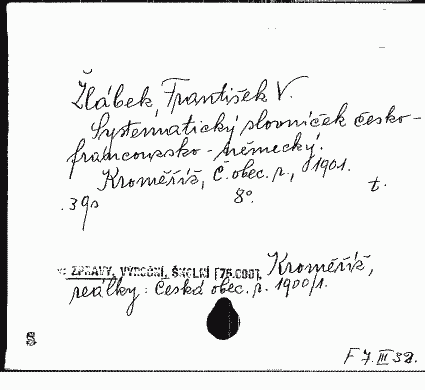 Žlábek, František V.
Systematický slovníček česko-
francouzsko-německý.
Kroměříž, Č. obec. r., 1901.
39 s 8° t.
ZPRÁVY, VÝROČNÍ, ŠKOLNÍ [75.000]. Kroměříž,
reálky: Česká obec. r. 1900/1.
8
F 7. III 32.